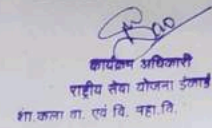 कार्यक्रम अधिकारी
राष्ट्रीय सेवा योजना इकाई
शा. कला वा. एवं वि. महा.वि.